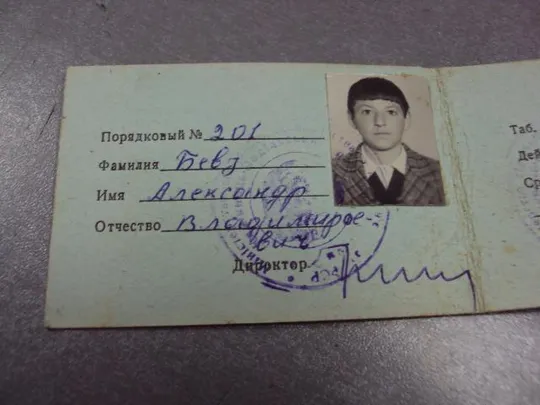 Порядковый № 201
Фамилия Бевз
Имя Александр
Отчество Владимиро-
вич
Директор
Таб.
Дей
Ср